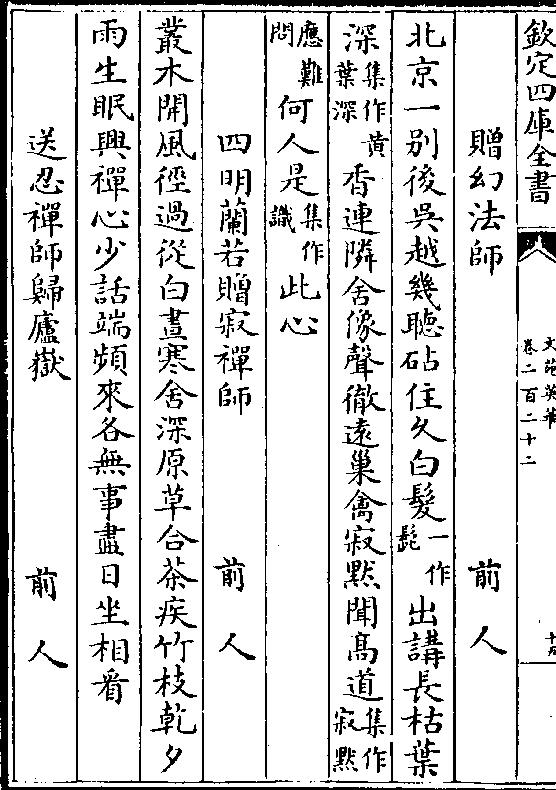 欽定四庫全書
文苑英華
卷二百二十二
贈幻法師 前人
北京一別後吳越幾聽砧住久白髮一作髭出講長枯葉
深集作黄葉深香連隣舍像聲徹遠巢禽寂黙聞髙道集作寂黙
應難問何人是集作識此心
四明蘭若贈寂禪師 前人
叢木開風徑過從白晝寒舍深原草合茶疾竹枝乾夕
雨生眠興禪心少話端頻來各無事盡日坐相看
送忍禪師歸廬嶽 前人